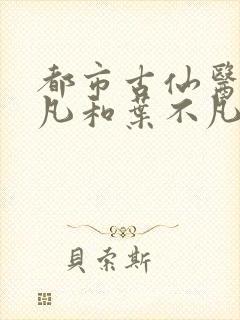 都市古仙醫
凡和葉不凡
貝索斯